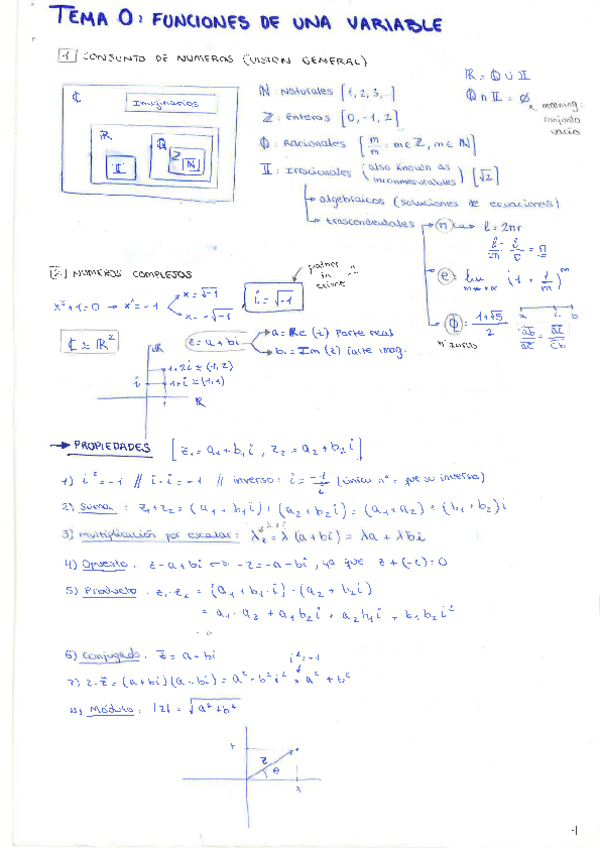 TEMA 0: FUNCIONES DE UNA VARIABLE
1 CONJUNTO DE NUMEROS (VISION GENERAL)
ℝ = ℚ ∪ 𝕀
ℚ ∩ 𝕀 = ∅ meaning: conjunto vacio
ℂ Imaginarios
ℝ 𝕀 ℚ Z ℕ
ℕ: Naturales [1, 2, 3, ..]
ℤ: Enteros [0, -1, 2]
ℚ: Racionales
𝕀: Irracionales (also known as inconmensurables) [√2]
algebraicos (soluciones de ecuaciones)
trascendentales
l = 2πr
e: lim (1 + 1/m)^m
1+√5 / 2
2. NUMEROS COMPLEJOS
partner in crime
x²+1=0 → x²=-1
x=√-1
x=-√-1
i = √-1
ℂ ≃ ℝ²
z = a + bi
a = Re (z) Parte real
b = Im (z) Parte imag.
iℝ
1+2i ≈ (1,2)
1+i ≈ (1,1)
i
1
ℝ
→ PROPIEDADES [z₁ = a₁+b₁i, z₂ = a₂+b₂i]
1) i² = -1 // i·i = -1 // inverso: i = -1/i (único nº que su inverso)
2) Suma: z₁+z₂ = (a₁+b₁i)+(a₂+b₂i) = (a₁+a₂)+(b₁+b₂)i
3) multiplicación por escalar: λz = λ(a+bi) = λa + λbi
4) Opuesto. z=a+bi ⇔ -z=-a-bi, ya que z+(-z)=0
5) Producto. z₁·z₂ = (a₁+b₁·i)·(a₂+b₂i)
= a₁·a₂ + a₁b₂i + a₂b₁i + b₁b₂i²
6) Conjugado. z̄ = a-bi
i²=-1
7) z·z̄ = (a+bi)(a-bi) = a²-b²i² = a²+b²
8) Módulo: |z| = √a²+b²
z
θ
-1